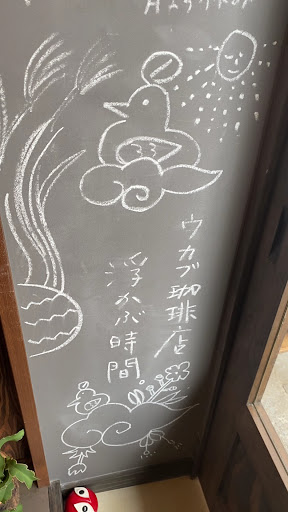 ウカブ珈琲店
浮かぶ時間